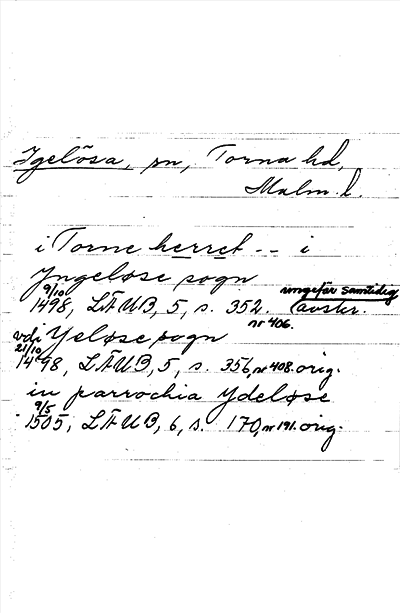 Igelösa, sn, Torna hd,
Malm. l.
i Torne herret -- i
Jngeløse sogn
9/10 ungefär samtidig
1498, LÄUB, 5, s. 352. avskr.
nr 406.
vdi Yeløse sogn
21/10
1498, LÄUB, 5, s. 356, nr 408. orig.
in parrochia Ydeløse
9/5
1505, LÄUB, 6, s. 170, nr 191. orig.